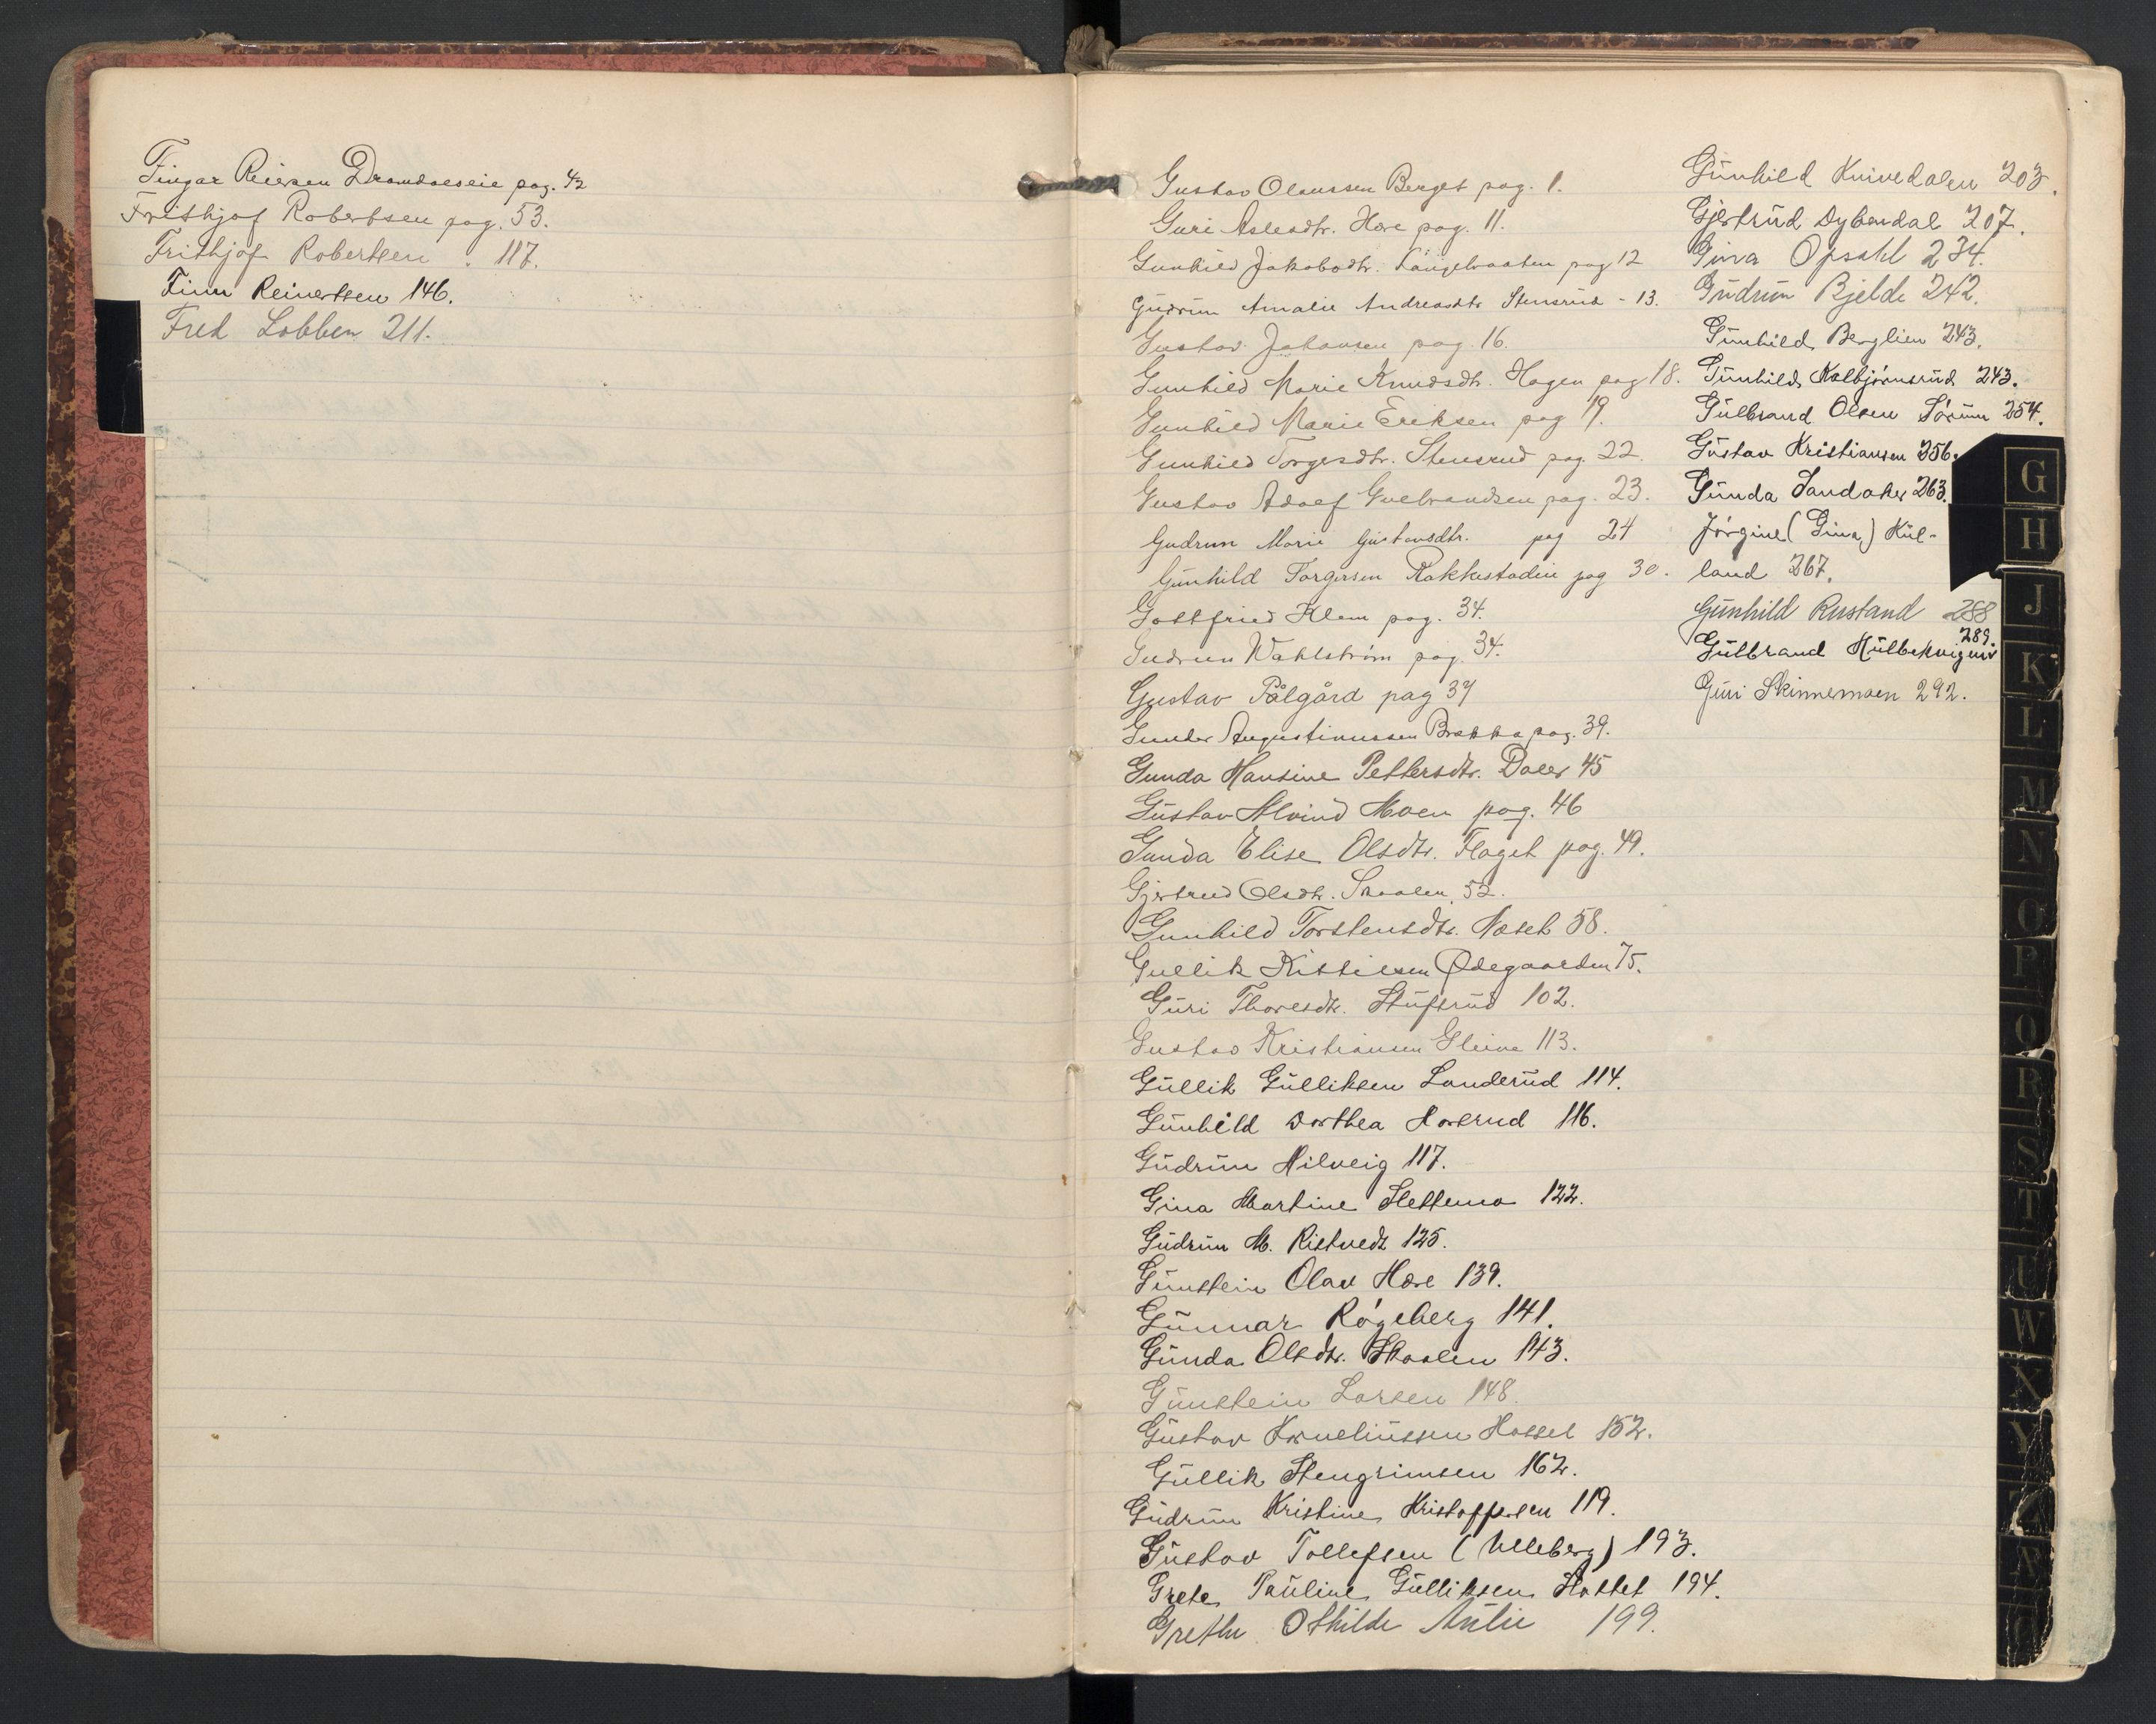 Fingar Reiersen Dramdaleseie pag. 42
Frithjof Robertsen pag. 53.
Frithjof Robertsen . 117.
Finn Reinertsen 146.
Fred Lobben 211.
Gustav Olaussen Berget pag. 1.
Guri Aslesdtr. Høre pag. 11.
Gunhild Jakobsdtr. Langebraaten pag 12
Gudrun Amalie Andreasdtr Stensrud - 13.
Gustav Johansen pag. 16.
Gunhild Marie Knudsdtr. Hagen pag 18.
Gunhild Marie Eriksen pag 19.
Gunhild Torgersdtr. Stensrud pag. 22.
Gustav Adolf Gulbrandsen pag. 23.
Gudrun Marie Gustavsdtr. pag 24
Gunhild Torgersen Rakkestadeie pag 30.
Gottfried Klem pag. 34.
Gudrun Wahlström pag. 34.
Gustav Pålgård pag 37
Gunder Augustinussen Brekka pag. 39.
Gunda Hansine Pettersdtr. Doler 45
Gustav Alvind Moen pag. 46
Gunda Elise Olsdtr. Flaget pag. 49.
Gjertrud Olsdtr. Skaalen 52.
Gunhild Torstensdtr. Næset 58.
Gullik Kittilsen Ødegaarden 75.
Guri Thoresdtr. Stufsrud 102.
Gustav Kristiansen Gleine 113.
Gullik Gulliksen Landerud 114.
Gunhild Dorthea Horsrud 116.
Gudrun Milveig 117.
Gina Martine Slettemo 122.
Gudrun M. Ristvedt 125.
Gunstein Olav Høre 139.
Gunnar Røgeberg 141.
Gunda Olsdtr. Skaalen 143.
Gunstein Larsen 148.
Gustav Korneliussen Hassel 152.
Gullik Stengrimsen 162.
Gudrun Kristine Kristoffersen 119.
Gustav Tollefsen (Ulleberg) 193.
Grete Pauline Gulliksen Hostet 194.
Grethe Othilde Aulie 199.
Gunhild Knivedalen 203.
Gjertrud Dybendal 207.
Gina Opsahl 234.
Gudrun Bjelde 242.
Gunhild Berglien 243.
Gunhild Kolbjørnsrud 243.
Gulbrand Olsen Sørum 254.
Gustav Kristiansen 256.
Gunda Sandaker 263.
Jørgine (Gina) Hul-
land 267.
Gunhild Rustand 288
Gulbrand Hulbekvigeiv 289.
Guri Skinnemoen 292.
G
H
J
K
L
M
N
O
P
Q
R
S
T
U
W
X
Y
Z